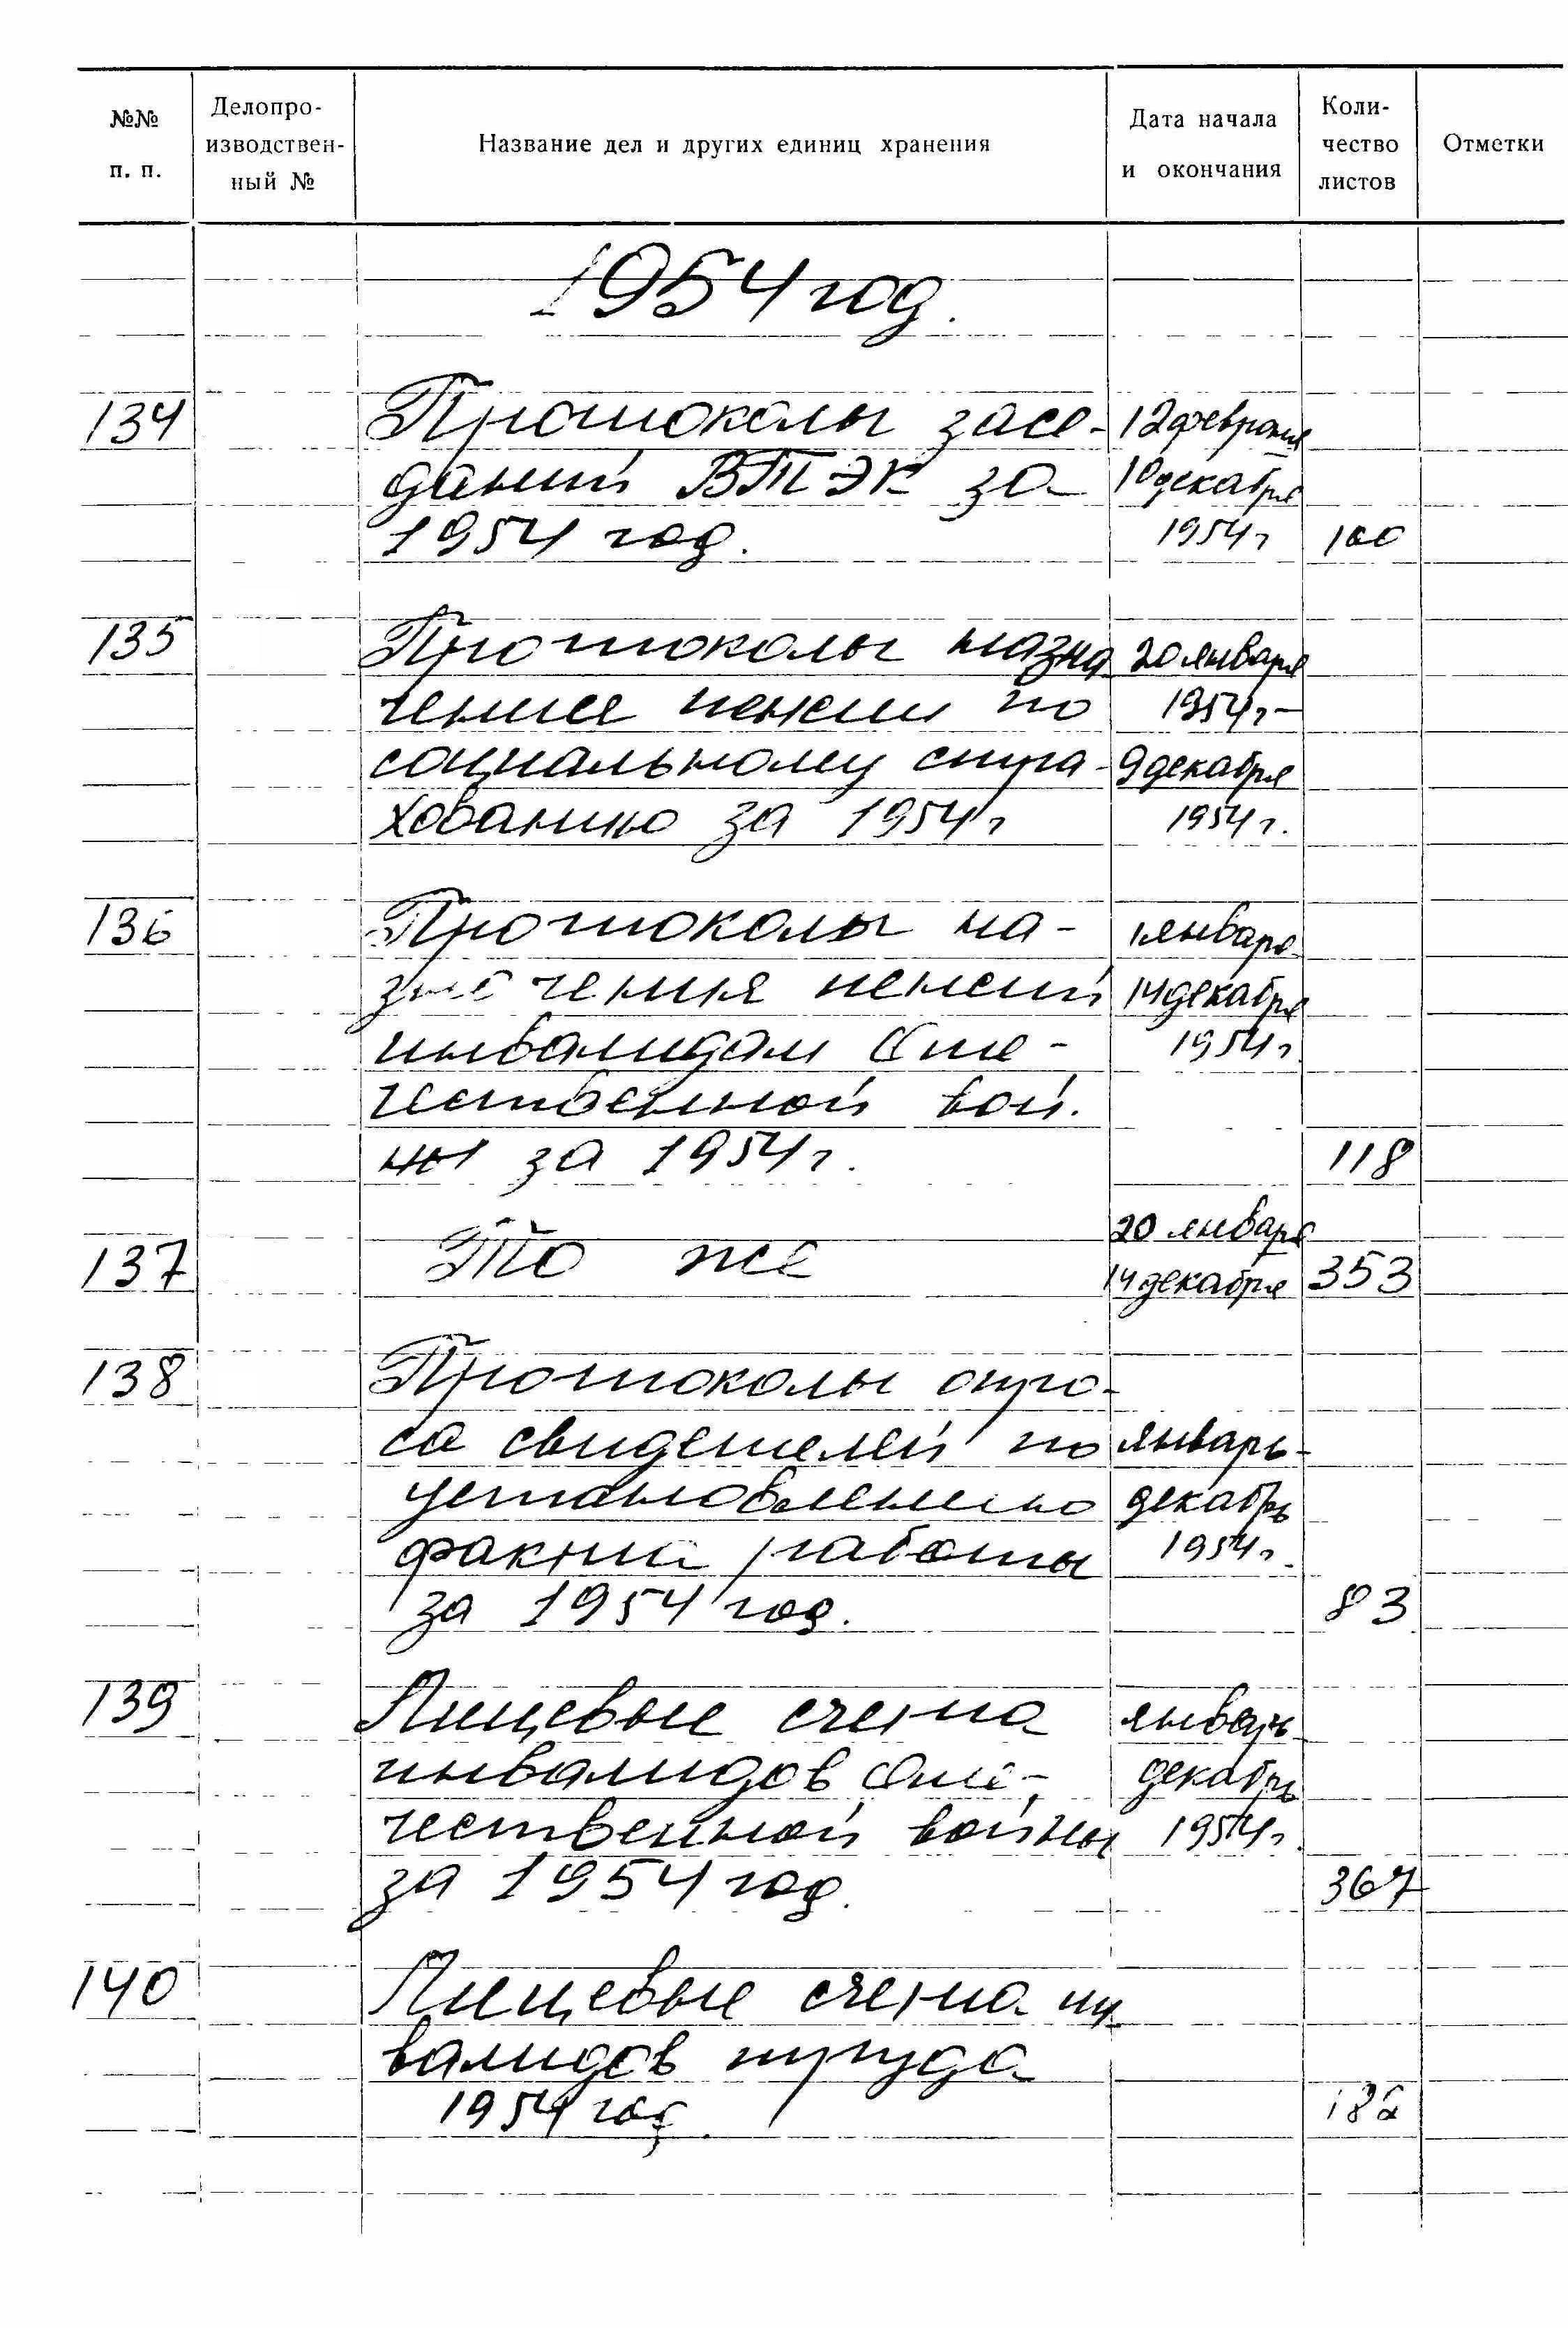 №№ п. п.
Делопро-
изводствен-
ный №
Название дел и других единиц хранения
Дата начала
и окончания
Коли-
чество
листов
Отметки
1954 год.
134 Протоколы засе- 12 февраля
даний ВТЭК за 10 декабря
1954 год. 1954 г 100
135 Протоколы назна 20 января
чение пенсии по 1954 г. –
социальному стра- 9 декабря
хованию за 1954 г 1954 г.
136 Протоколы на- 1 января
значения пенсий 14 декабря
инвалидам Оте- 1954 г
чественной вой-
ны за 1954 г. 118
20 января
137 То же 14 декабря 353
138 Протоколы опро-
са свидетелей по январь-
установлению декабрь
факта работы 1954 г.
за 1954 год. 83
139 Лицевые счета январь
инвалидов Оте- декабрь
чественной войны 1954 г.
за 1954 год. 367
140 Лицевые счета ин-
валидов труда
1954 год. 182